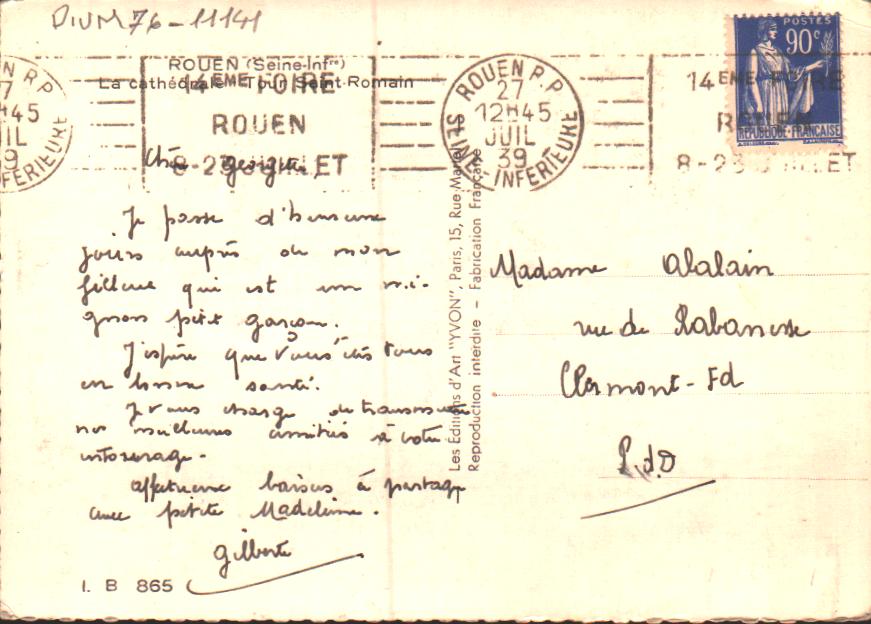 DIVM76-11141
ROUEN (Seine-Infre)
La cathédrale - Tour Saint-Romain
14EME FOIRE
ROUEN
8-23 JUILLET
ROUEN R.P.
27
12H45
JUIL
39
SEINE INFERIEURE
POSTES
90c
REPUBLIQUE-FRANCAISE
14EME FOIRE
8-23 JUILLET
Chère georgette,
Je passe d'heureux
jours auprès de mon
filleul qui est un mi-
gnon petit garçon.
J'espère que vous êtes tous
en bonne santé.
Je vous charge de transmettre
nos meilleures amitiés à votre
entourage.
Affectueux baisers à partager
avec petite Madeleine.
Gilberte
I. B 865
Les Editions d'Art "YVON", Paris, 15, Rue Martel
Reproduction interdite - Fabrication Française
Madame
rue de Rabanesse
Clermont-Fd
P.d.D